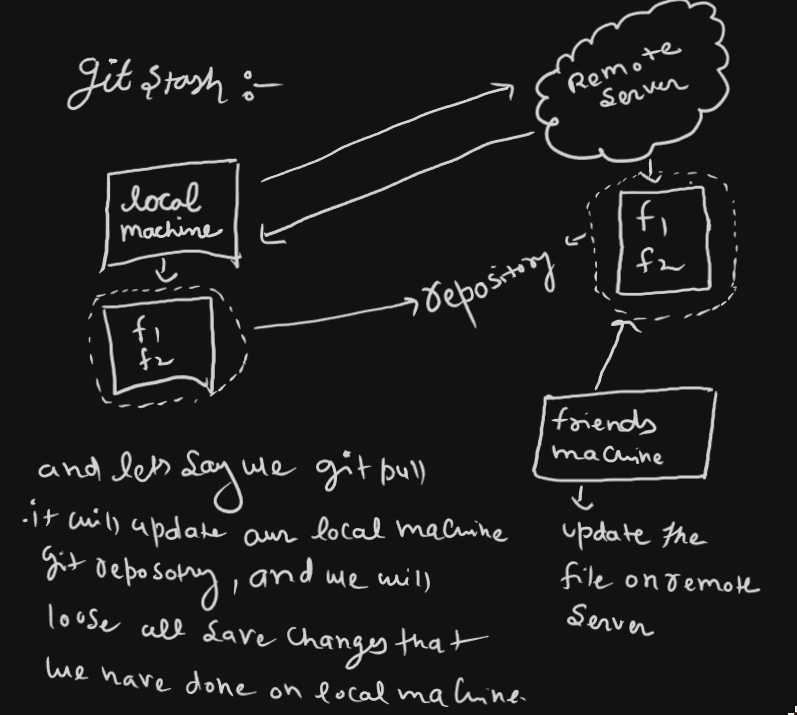 git stash :-
Remote
Server
local
machine
f1
f2
repository
f1
f2
friends
machine
update the
file on remote
Server
and lets say we git pull
it will update our local machine
git reposotry, and we will
loose all save changes that
we have done on local machine.